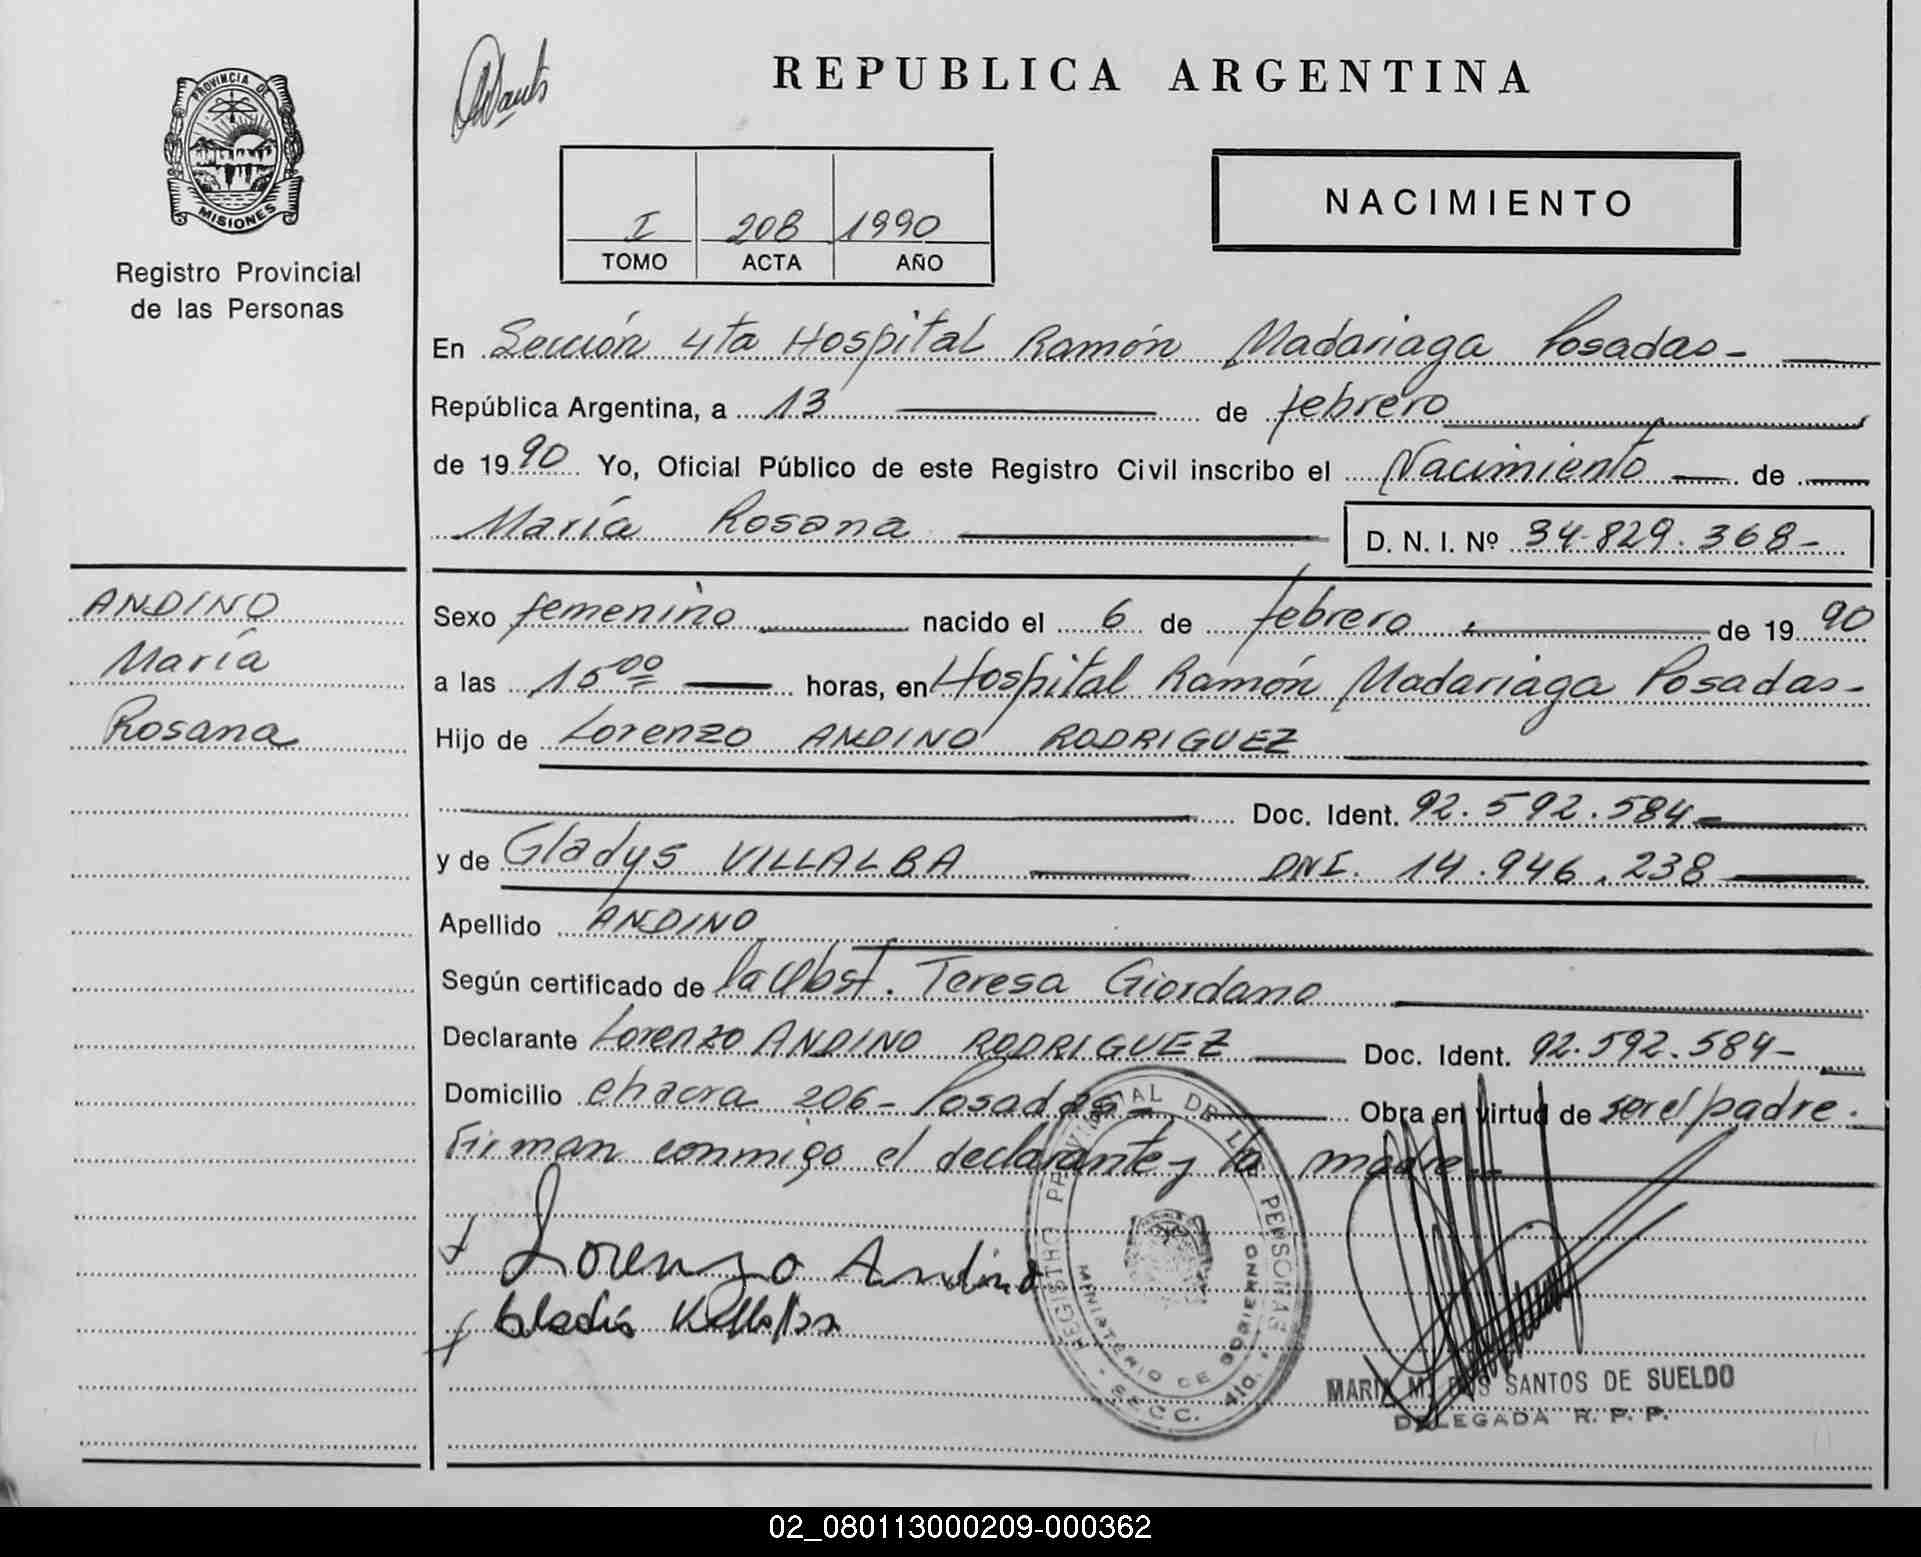 REPUBLICA ARGENTINA
PROVINCIA DE MISIONES
Registro Provincial
de las Personas
I 208 1990
TOMO ACTA AÑO
NACIMIENTO
En Sección 4ta Hospital Ramón Madariaga Posadas-
República Argentina, a 13 de febrero
de 1990 Yo, Oficial Público de este Registro Civil inscribo el Nacimiento de
María Rosana D. N. I. Nº 34.829.368-
ANDINO
María
Rosana
Sexo femenino nacido el 6 de febrero de 1990
a las 15⁰⁰ horas, en Hospital Ramón Madariaga Posadas-
Hijo de Lorenzo ANDINO RODRIGUEZ
Doc. Ident. 92.592.584-
y de Gladys VILLALBA DNI. 14.946.238
Apellido ANDINO
Según certificado de la Obst. Teresa Giordano
Declarante Lorenzo ANDINO RODRIGUEZ Doc. Ident. 92.592.584-
Domicilio chacra 206- Posadas- Obra en virtud de ser el padre.
Firman conmigo el declarante y la madre.-
Lorenzo Andino
Gladis Villalba
REGISTRO PROVINCIAL DE LAS PERSONAS
MINISTERIO DE GOBIERNO
SECC. 4ta.
MARIA M. DOS SANTOS DE SUELDO
DELEGADA R. P. P.
02_080113000209-000362